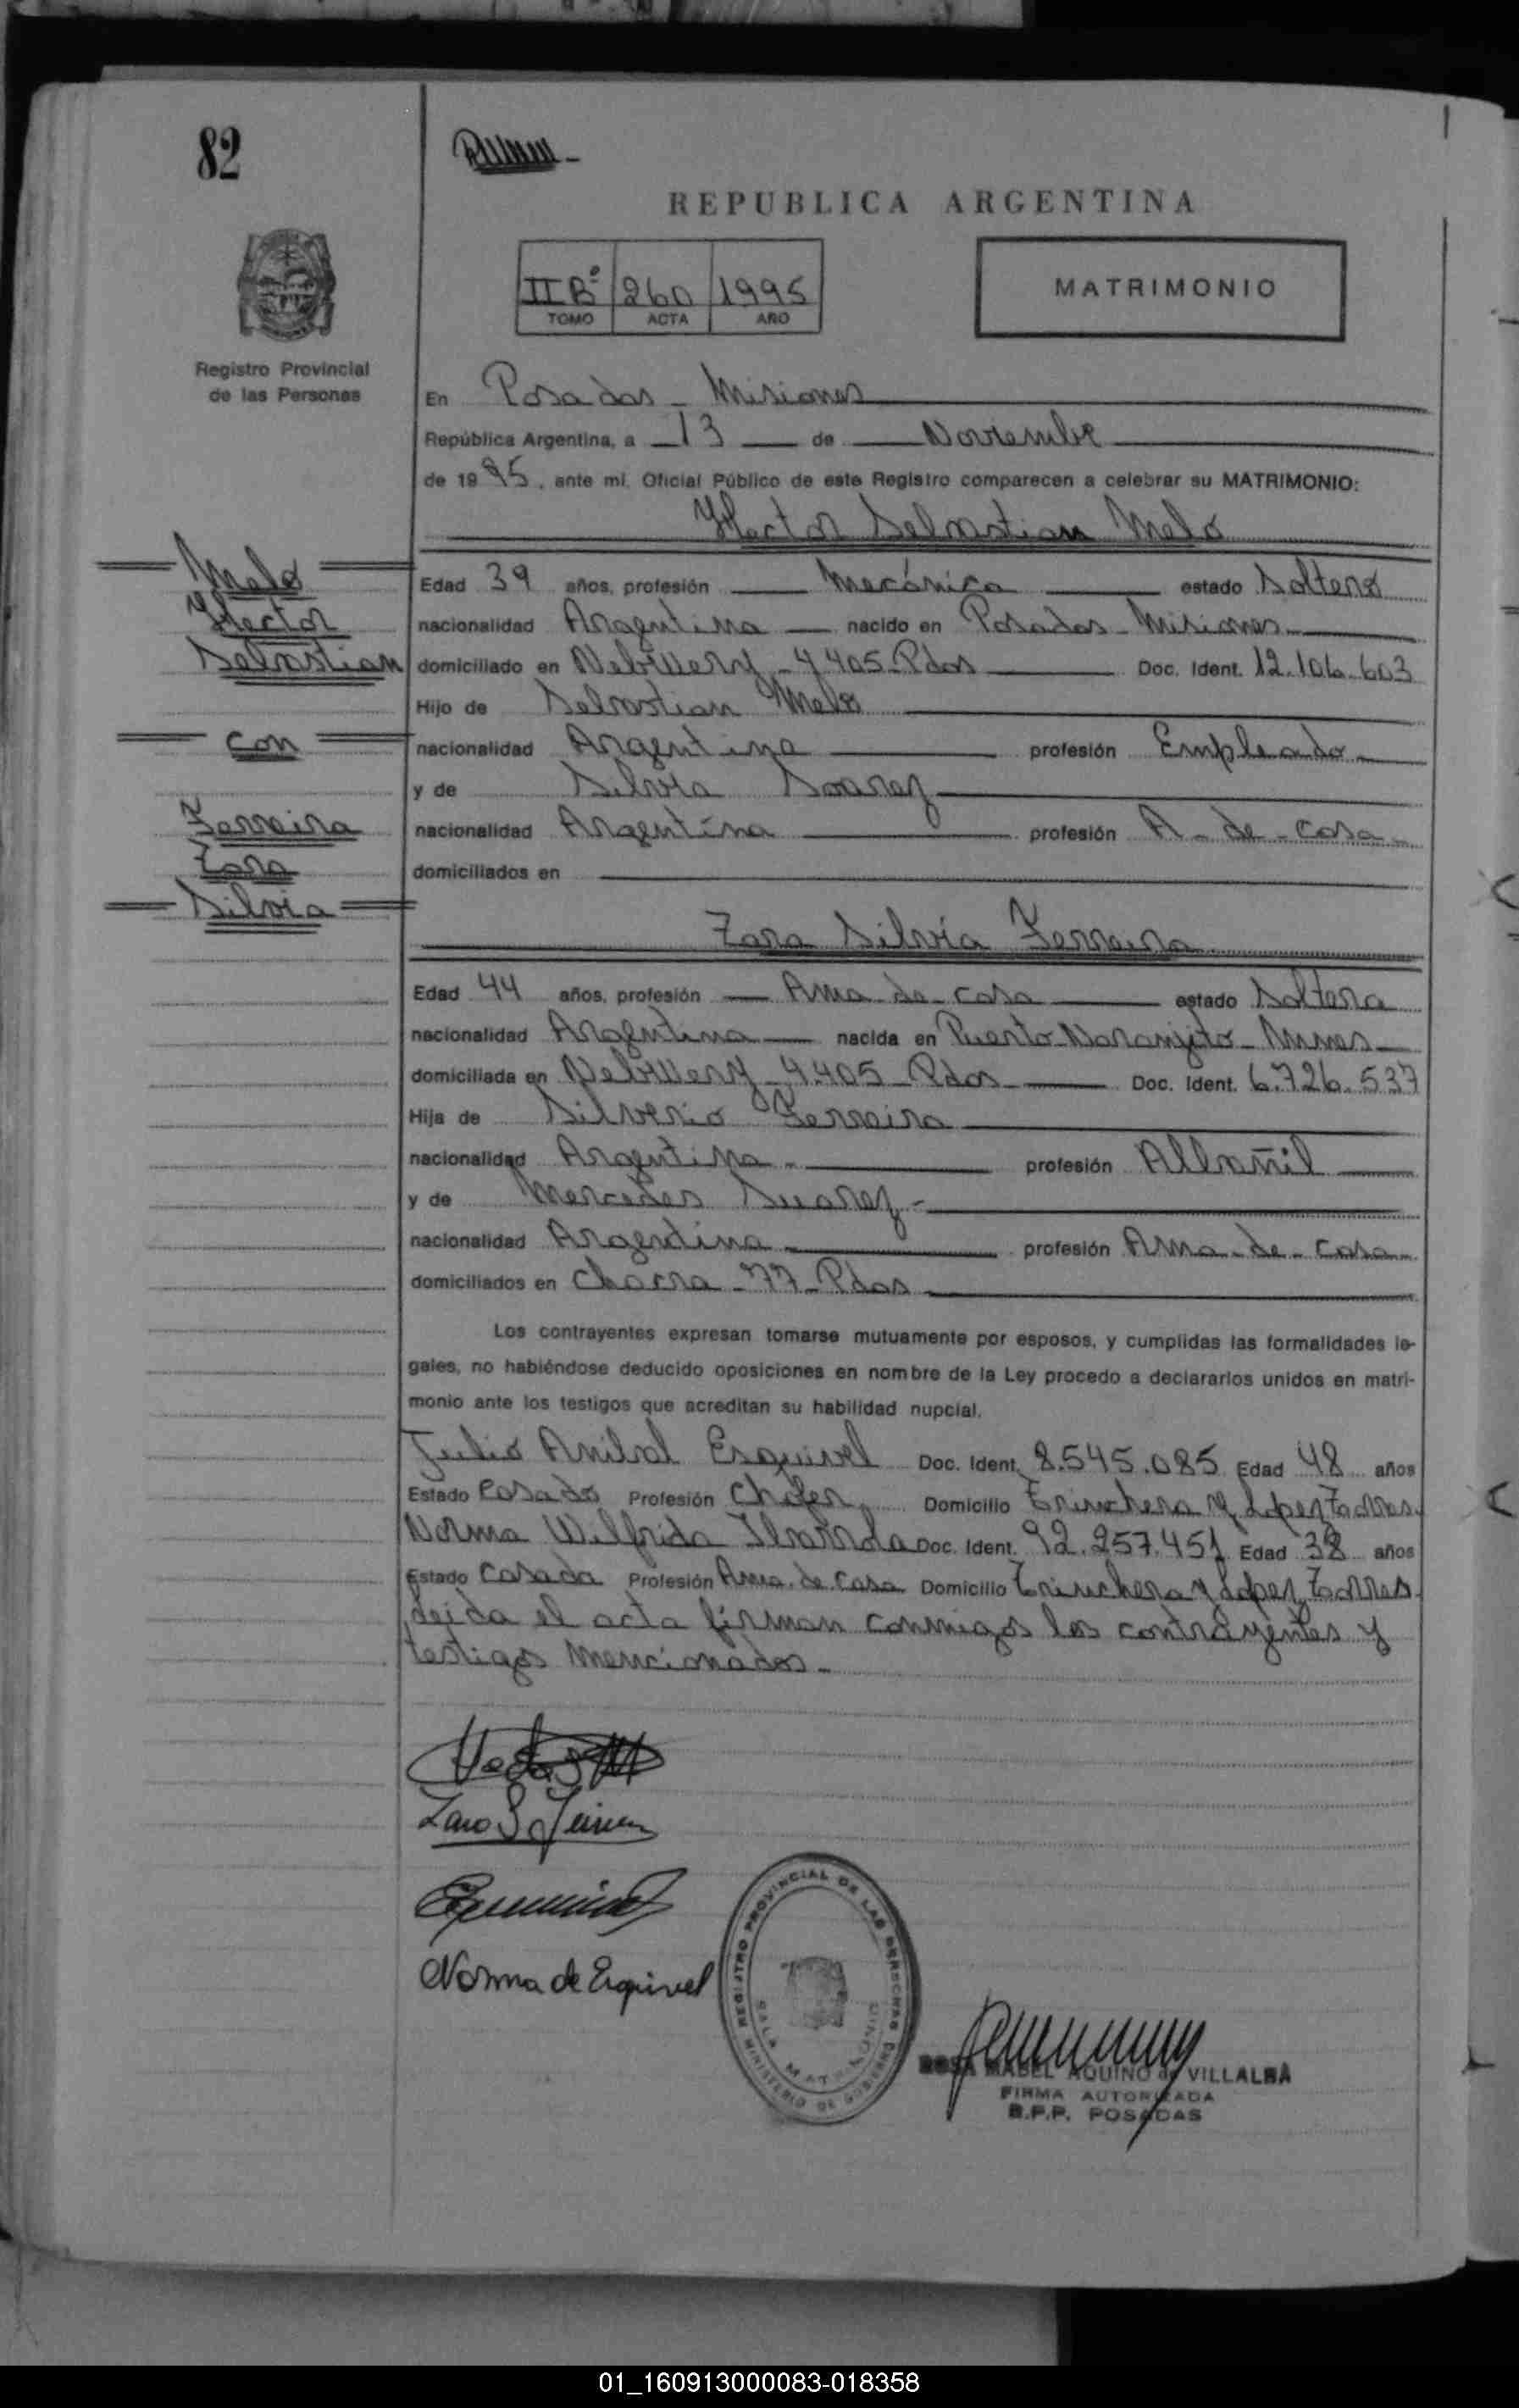 82
REPUBLICA ARGENTINA
IIBº 260 1995
TOMO ACTA AÑO
MATRIMONIO
Registro Provincial
de las Personas
En Posadas - Misiones
República Argentina, a 13 de Noviembre
de 1995, ante mi, Oficial Público de este Registro comparecen a celebrar su MATRIMONIO:
Hector Sebastian Melo
Melo
Hector
Sebastian
con
Ferreira
Zara
Silvia
Edad 39 años, profesión Mecánico estado Soltero
nacionalidad Argentina nacido en Posadas - Misiones
domiciliado en 4405 Pdas Doc. Ident. 12.106.603
Hijo de Sebastian Melo
nacionalidad Argentina profesión Empleado
y de Silvia Soarez
nacionalidad Argentina profesión A - de - casa
domiciliados en
Zara Silvia Ferreira
Edad 44 años, profesión Ama de casa estado Soltera
nacionalidad Argentina nacida en Puerto Naranjito - Mnes
domiciliada en 4.405 - Pdas Doc. Ident. 6.726.537
Hija de Silverio Ferreira
nacionalidad Argentina profesión Albañil
y de Mercedes Suarez
nacionalidad Argentina profesión Ama - de - casa
domiciliados en Chacra - 77 - Pdas
Los contrayentes expresan tomarse mutuamente por esposos, y cumplidas las formalidades le-
gales, no habiéndose deducido oposiciones en nombre de la Ley procedo a declararlos unidos en matri-
monio ante los testigos que acreditan su habilidad nupcial.
Julio Anibal Esquivel Doc. Ident. 8.545.085 Edad 48 años
Estado Casado Profesión Chofer Domicilio Trinchera y Lopez Torres
Norma Wilfrida Doc. Ident. 92.257.451 Edad 38 años
Estado Casada Profesión Ama de casa Domicilio Trinchera y Lopez Torres
leida el acta firman conmigo los contrayentes y
testigos mencionados -
Zara S. Ferreira
Norma de Esquivel
REGISTRO PROVINCIAL DE LAS PERSONAS
SALA MATRIMONIO
MINISTERIO DE GOBIERNO
ROSA MABEL AQUINO de VILLALBA
FIRMA AUTORIZADA
R.P.P. POSADAS
01_160913000083-018358